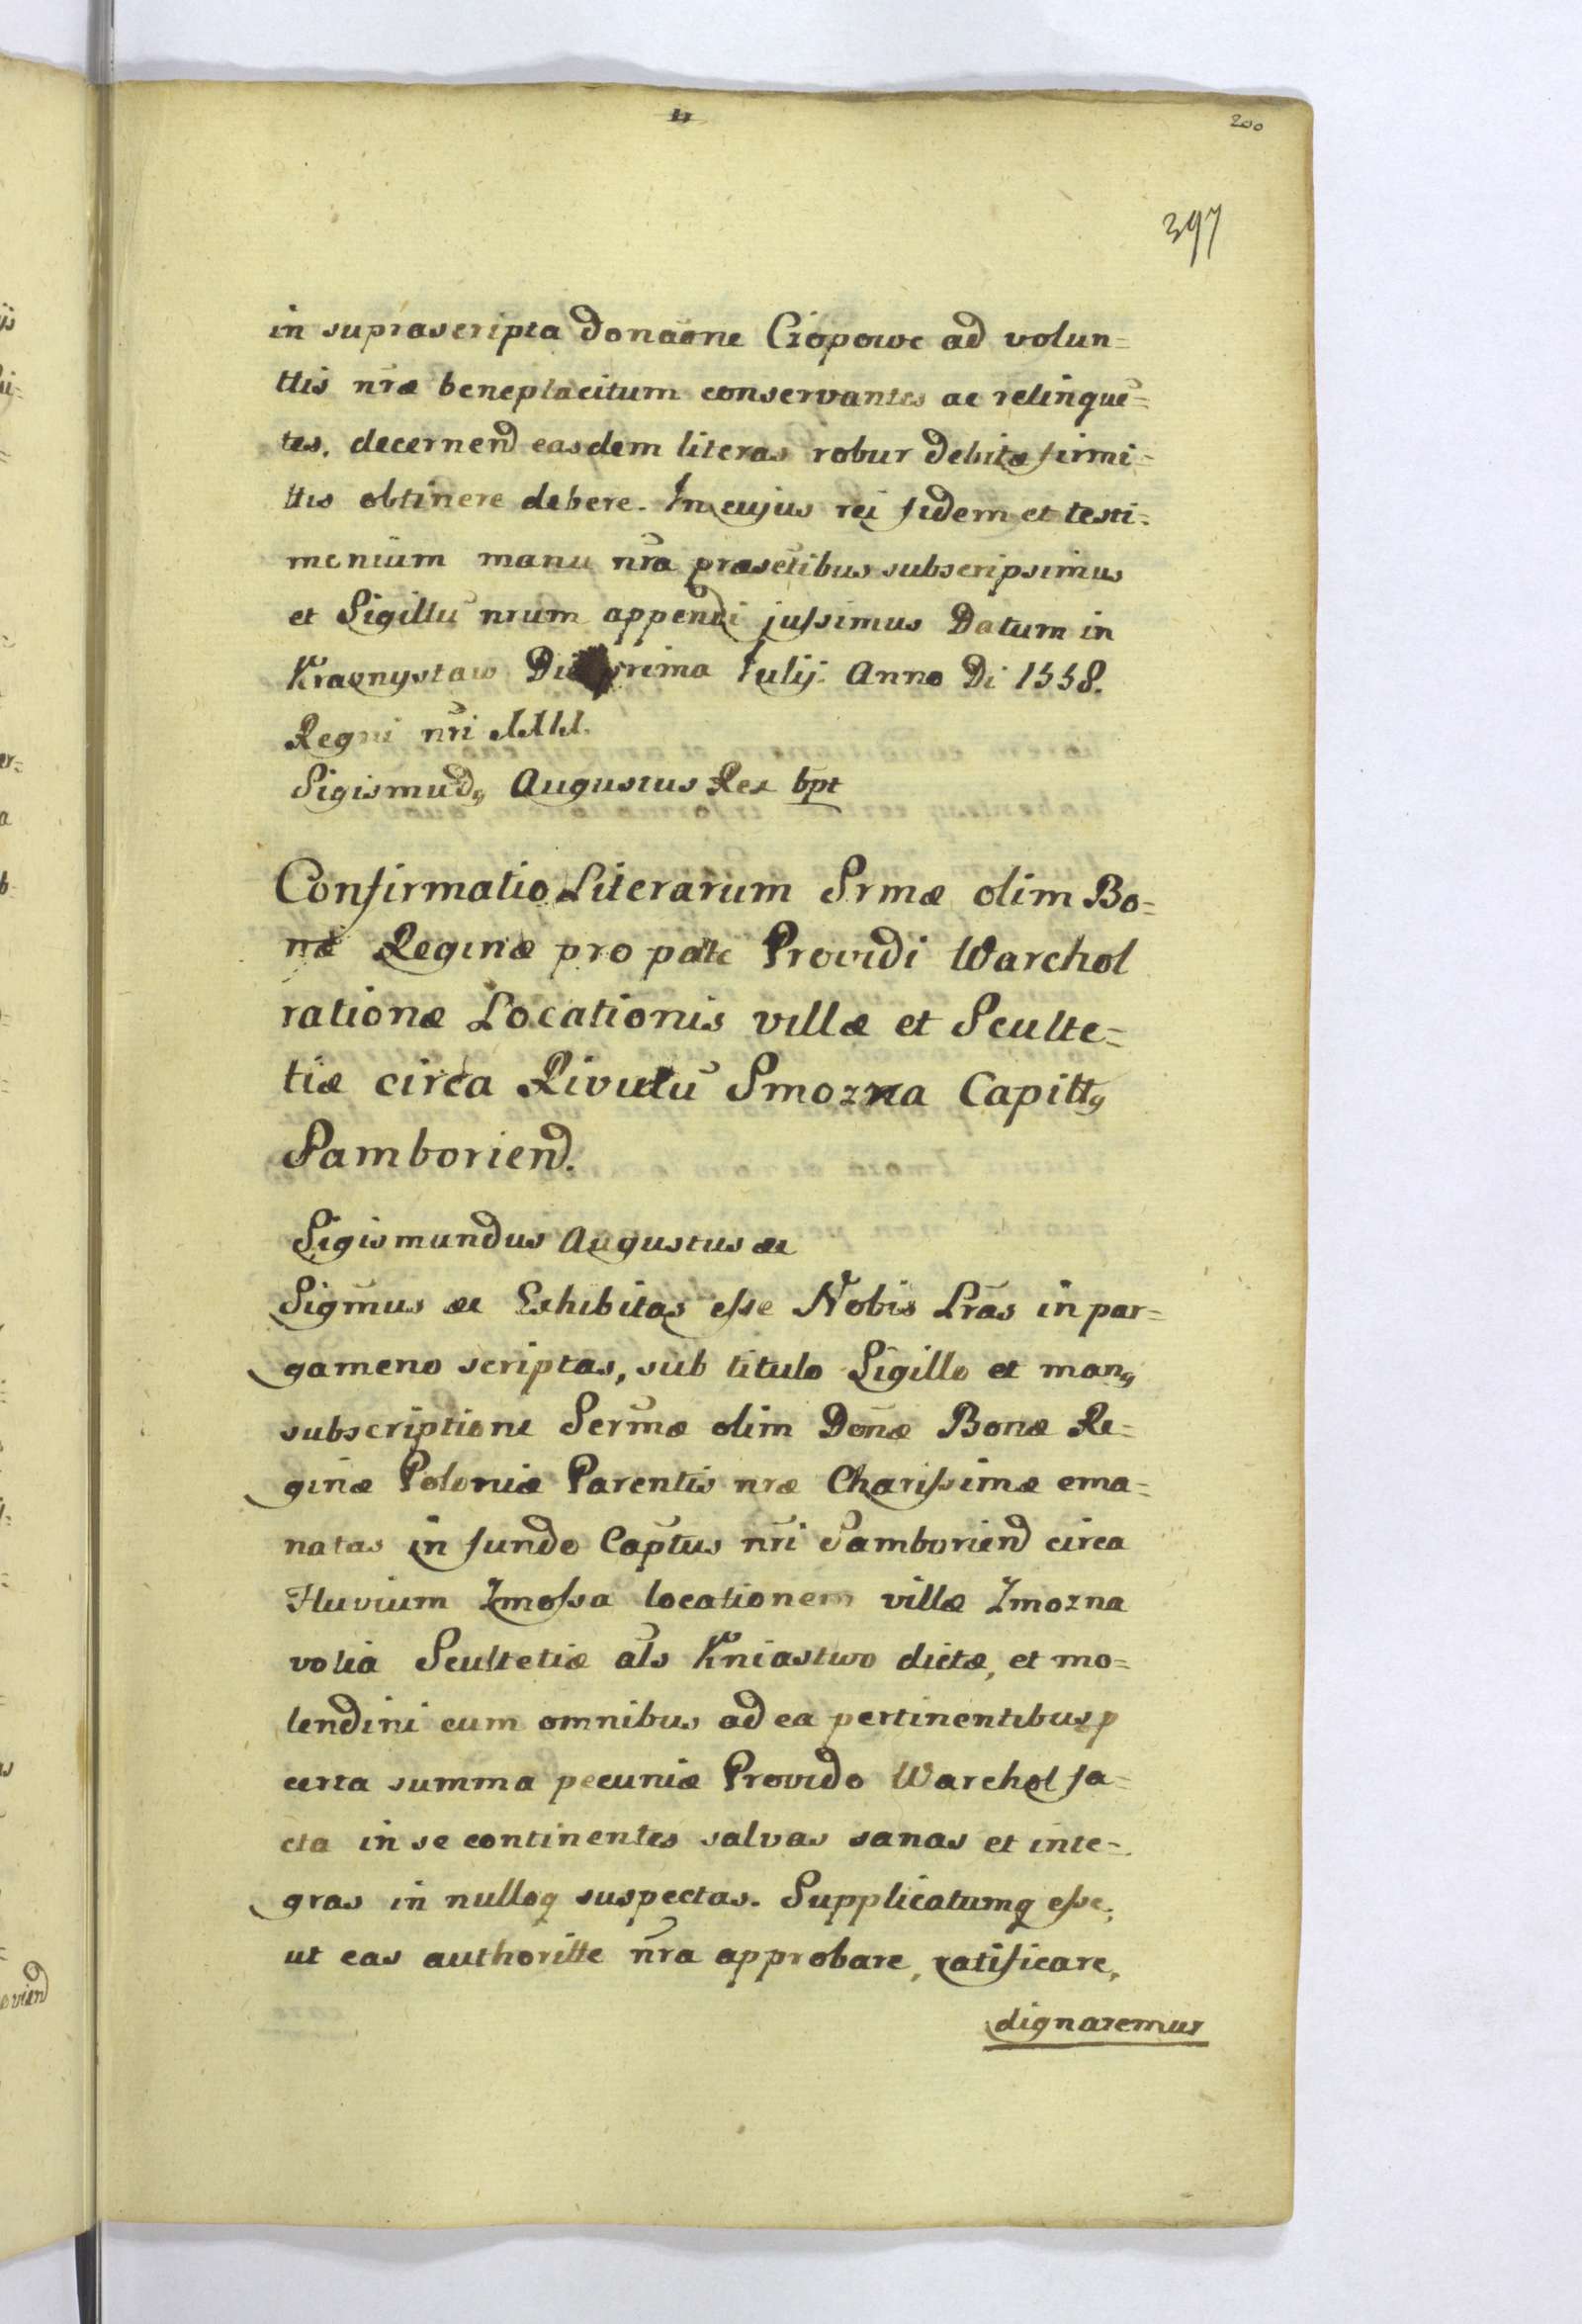 200
397
in suprascripta donaone Czopowe ad volun=
ttis nræ beneplacitum conservantes ac relinquē=
tes. decernend easdem literas robur debitæ firmi=
ttis obtinere debere. In cujus rei fidem et testi=
monium manu nra præsētibus subscripsimus
et Sigillū nrum appendi jussimus Datum in
Krasnystaw Die prima Iulij. Anno Di 1558.
Regni nri
Sigismūdg Augustus Rex
Confirmatio Literarum Srmæ olim Bo=
næ Reginæ pro pāte Providi Warchol
rationæ Locationis villæ et Sculte=
tiæ circa Rivulū Smozna Capittg
Samboriend.
Sigismundus Augustus &c
Sigm̄us &c Exhibitas esse Nobis Lrās in par=
gameno scriptas, sub titulo Sigillo et mang
subscriptione Serm̄æ olim Don̄æ Bonæ Re=
ginæ Poloniæ Parentis nræ Charissimæ ema=
natas in fundo Captus nri Samboriend circa
Fluvium Zmossa locationem villæ Zmozna
volia Scultetiæ als Kniastwo dictæ, et mo=
lendini cum omnibus ad ea pertinentibus p
certa summa pecuniæ Provido Warchol fa=
cta in se continentes salvas sanas et inte=
gras in nulloq suspectas. Supplicatumq esse,
ut eas authoritte nra approbare, ratificare,
dignaremur